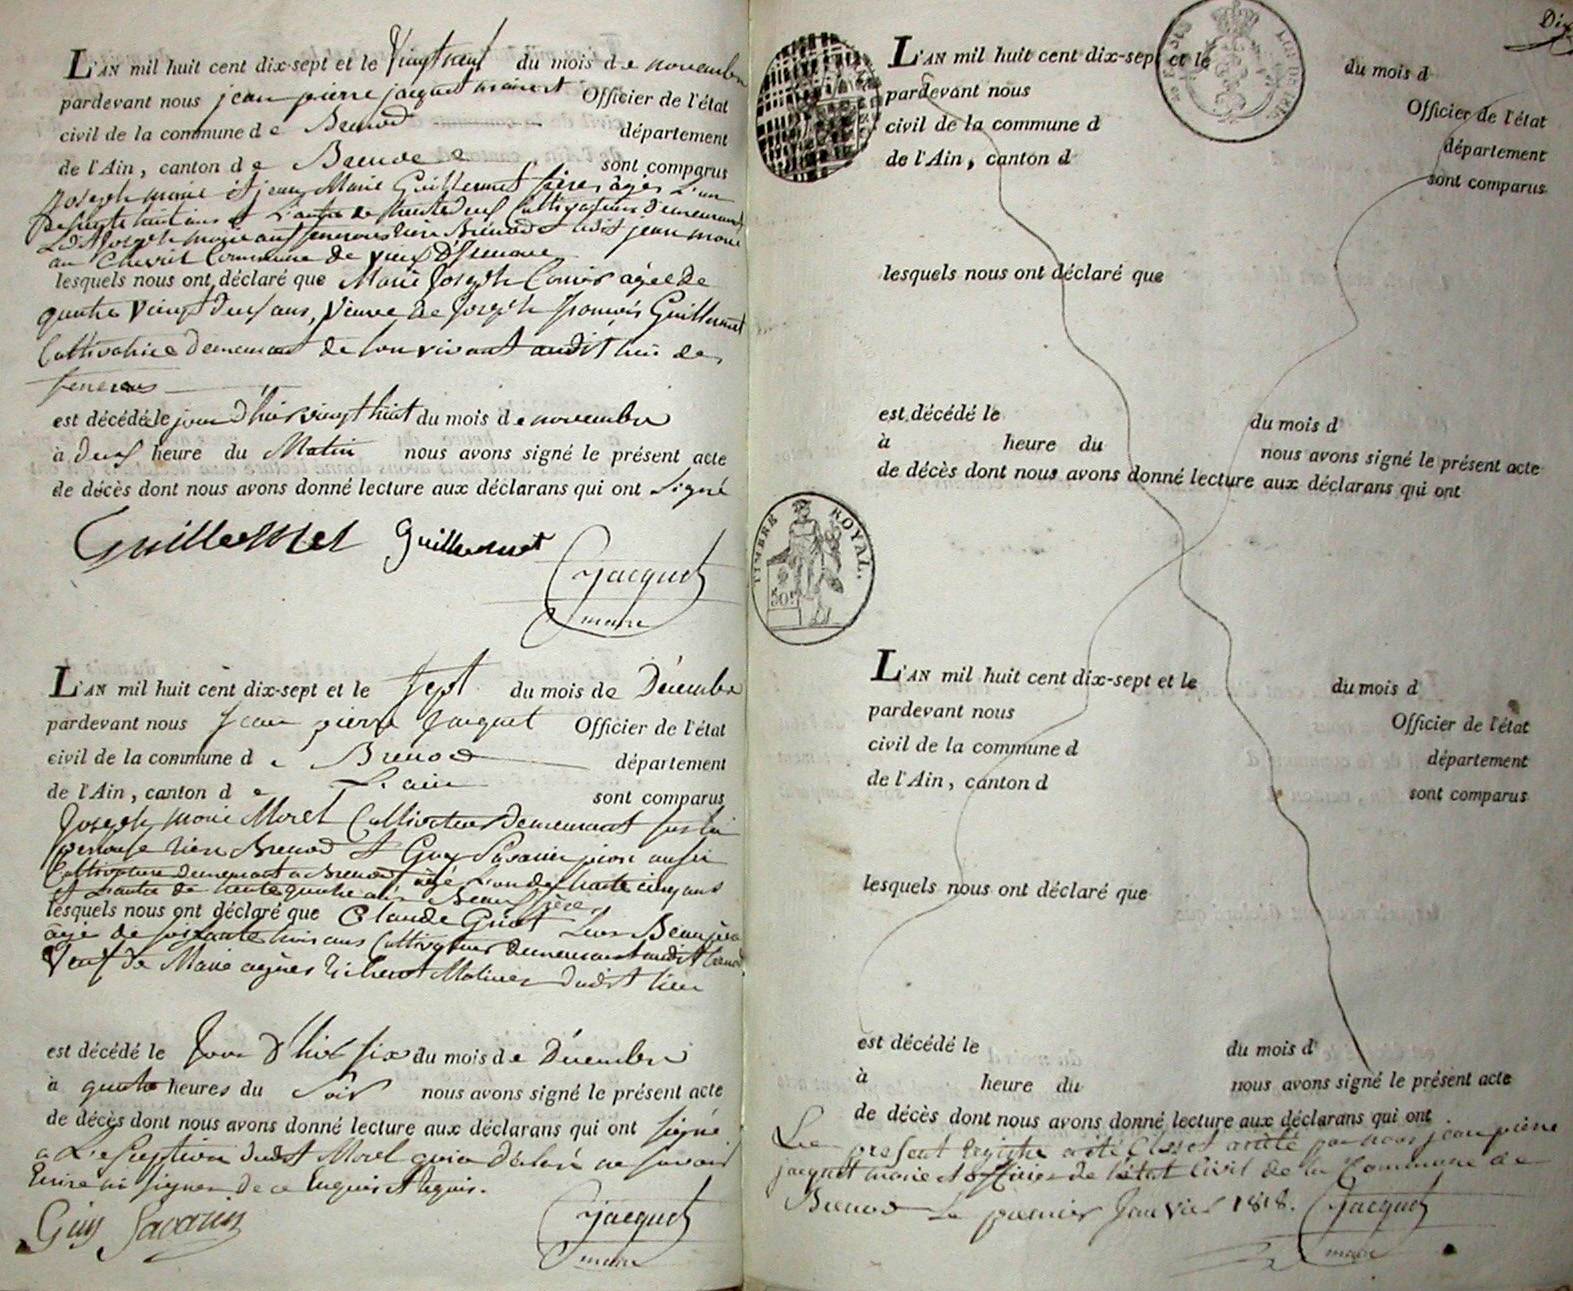 L'AN mil huit cent dix-sept et le Vingt neuf du mois de novembre
pardevant nous jean pierre jacquet maire et Officier de l'état
civil de la commune de Brenod département
de l'Ain, canton de Brenod sont comparus
Joseph marie et jean Marie Guillermet frères agés L'un
de huit ans et L'autre de trente deux Cultivateurs demeurant
Led. Joseph marie aux rière Brénod et ledit jean marie
au Chevril Commune de vieux D'Izenave
lesquels nous ont déclaré que Marie Joseph agée de
quatre Vingt deux ans, Veuve de Joseph françois Guillermet
Cultivatrice demeurant de son vivant audit lieu de

est décédé le jour d'hier vingt huit du mois de novembre
à deux heure du Matin nous avons signé le présent acte
de décès dont nous avons donné lecture aux déclarans qui ont Signé
Guillermet Guillermet Jacquet
maire
L'AN mil huit cent dix-sept et le Sept du mois de Décembre
pardevant nous Jean pierre Jacquet Officier de l'état
civil de la commune de Brenod département
de l'Ain, canton de L'ain sont comparus
Joseph marie Morel Cultivateur demeurant sur la
perouse rière Brenod et Guy Savarin pion aussi
Cultivateur demeurant a Brenod agé L'un de trente cinq ans
et L'autre de trente quatre ans Beaux frère
lesquels nous ont déclaré que Claude Griot Leur Beau père
agé de soixante trois ans Cultivateur demeurant audit Brenod
Veuf de Marie agnès Richerot Molinier dudit lieu
est décédé le Jour d'hier six du mois de Décembre
à quatre heures du Soir nous avons signé le présent acte
de décès dont nous avons donné lecture aux déclarans qui ont signé
a L'exception dudit Morel qui a déclaré ne savoir
Ecrire ni signer de ce Enquis et requis.
Guy Savarin Jacquet
maire
L'AN mil huit cent dix-sept et le du mois d
pardevant nous Officier de l'état
civil de la commune d département
de l'Ain, canton d sont comparus
lesquels nous ont déclaré que
est décédé le du mois d
à heure du nous avons signé le présent acte
de décès dont nous avons donné lecture aux déclarans qui ont
TIMBRE ROYAL.
L'AN mil huit cent dix-sept et le du mois d
pardevant nous Officier de l'état
civil de la commune d département
de l'Ain, canton d sont comparus
lesquels nous ont déclaré que
est décédé le du mois d
à heure du nous avons signé le présent acte
de décès dont nous avons donné lecture aux déclarans qui ont
Le present registre a été Closset arrêté par nous jean pierre
jacquet maire et officier de l'état Civil de la Commune de
Brenod Le premier Janvier 1818. Jacquet
maire